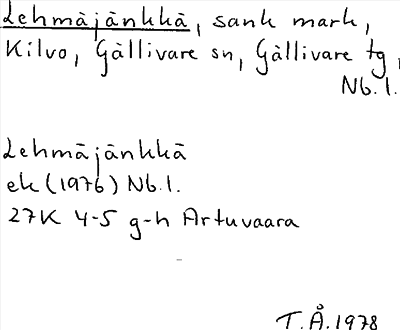 Lehmäjänkkä, sank mark,
Kilvo, Gällivare sn, Gällivare tg,
Nb.l.
Lehmäjänkkä
ek (1976) Nb.l.
27K 4-5 g-h Artuvaara
T.Å. 1978